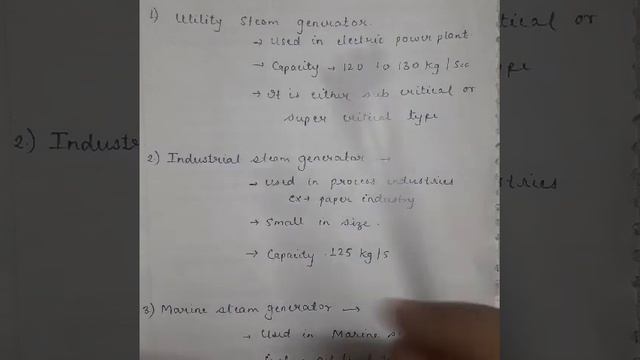 1) Utility steam generator.
→ Used in electric power plant
→ Capacity → 120 to 130 kg/sec
→ It is either sub critical or
super critical type
2) Industrial steam generator →
→ Used in process industries
ex → paper industry
→ Small in size.
→ Capacity .125 kg/s
3) Marine steam generator →
→ Used in Marine